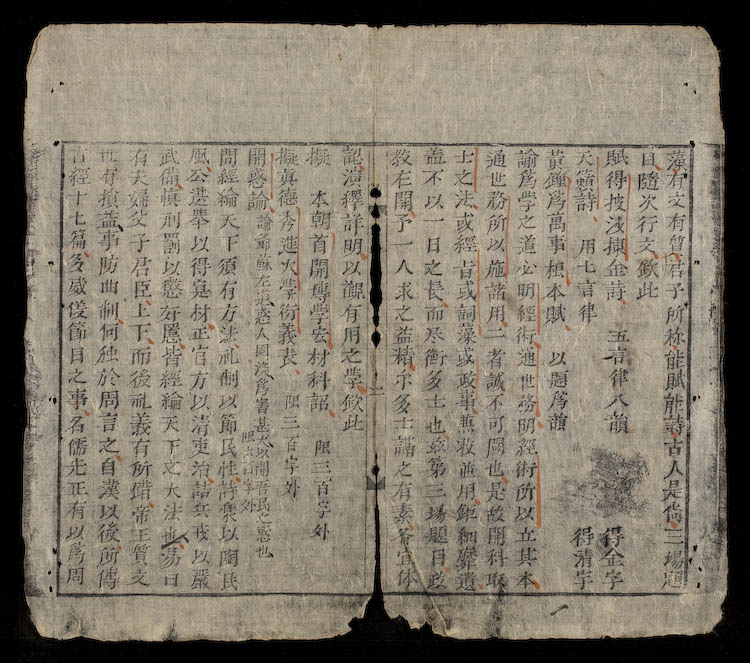 藻有文有質君子所称能賦能詩古人是尚三場題
目隨次行文欽此
賦得披沙揀金詩　五言律八韻　得金字
天籟詩　用七言律　得清字
黃鍾爲萬事根本賦　以題爲韻
諭爲學之道必明經術通世務明經術所以立其本
通世務所以施諸用二者誠不可闕也是故開科取
士之法或經旨或詞藻或政事兼收並用鉅細靡遺
盖不以一日之長而尽衡多士也玆第三場題目政
教在開予一人求之益精示多士諧之有素答宜体
認演繹詳明以覌有用之學欽此
擬　本朝首開塼學去材科詔　限三百字外
擬眞德秀進大學衍義表　限三百字外
開惑論　論爺蘇左道惑人固淺爲害甚大以開吾民之惑也　限六百字外
問經綸天下須有方法礼制以節民性詩集以陶民
風公选舉以得寔材正官方以清吏治詰兵戎以嚴
武俻愼刑罰以懲奸慝皆經綸天下之大法也易曰
有夫婦父子君臣上下而後礼義有所錯帝王質文
世有損益事防曲制何独於周言之自漢以後所傳
古經十七篇多威儀節目之事名儒尤正有以爲周
二